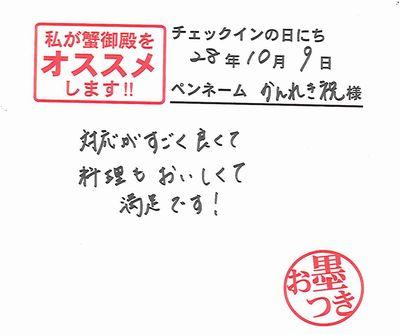 私が蟹御殿を
オススメ
します!!
チェックインの日にち
28年10月9日
ペンネーム かんれき祝様
対応がすごく良くて
料理もおいしくて
満足です!
お墨
つき